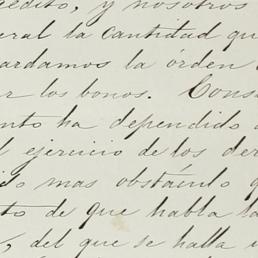 rédito, y nosotros
eral la cantidad qu
ardamos la órden
ar los bonos. Cons
nto ha dependido
l ejercicio de los der
ido mas obstáculo q
to de que habla la
, del que se halla